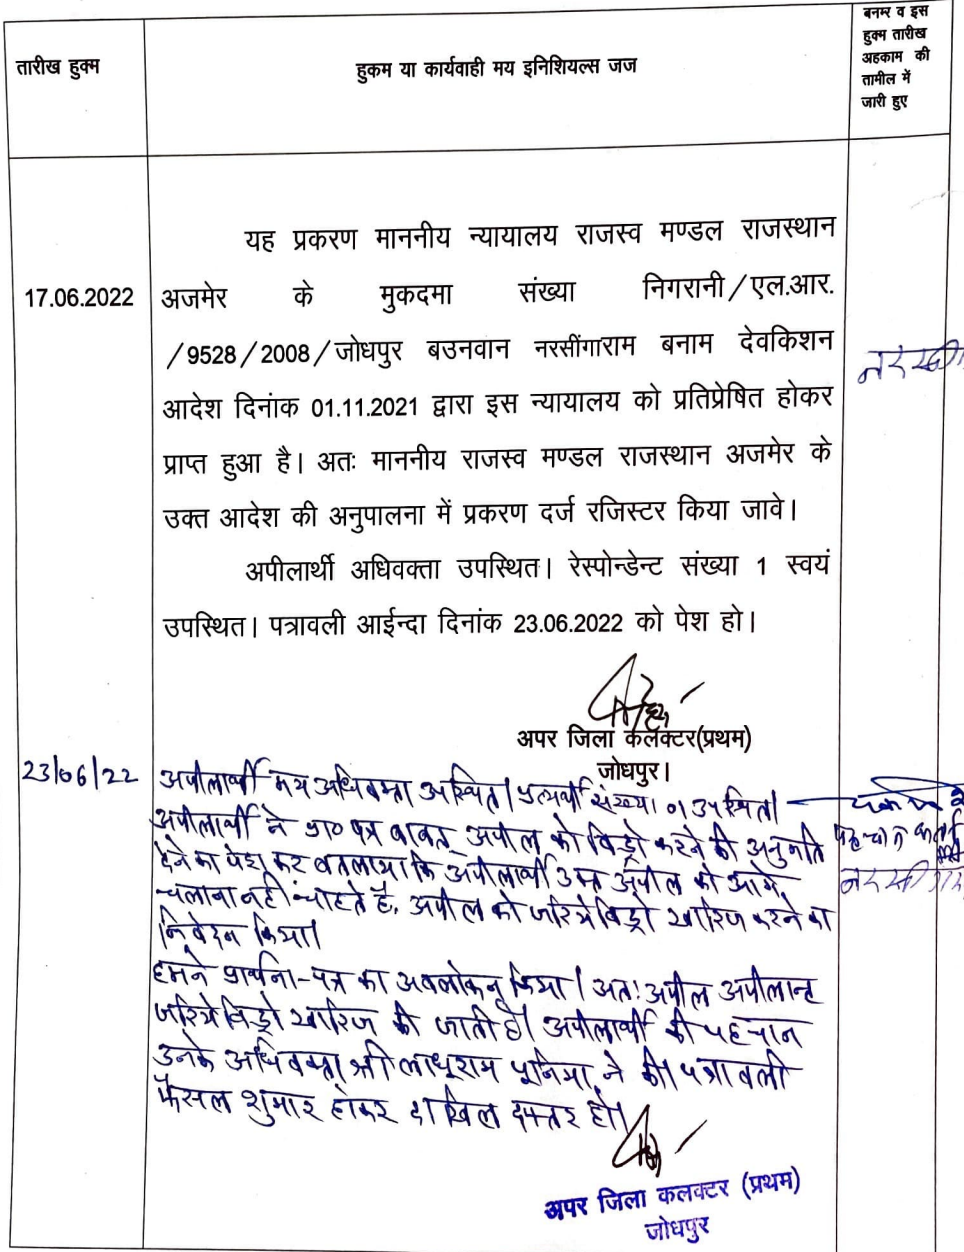 तारीख हुक्म
हुकम या कार्यवाही मय इनिशियल्स जज
बनम्र व इस
हुक्म तारीख
अहकाम की
तामील में
जारी हुए
यह प्रकरण माननीय न्यायालय राजस्व मण्डल राजस्थान
17.06.2022 अजमेर के मुकदमा संख्या निगरानी/एल.आर.
/9528/2008/जोधपुर बउनवान नरसींगाराम बनाम देवकिशन
आदेश दिनांक 01.11.2021 द्वारा इस न्यायालय को प्रतिप्रेषित होकर
प्राप्त हुआ है। अतः माननीय राजस्व मण्डल राजस्थान अजमेर के
उक्त आदेश की अनुपालना में प्रकरण दर्ज रजिस्टर किया जावे।
अपीलार्थी अधिवक्ता उपस्थित। रेस्पोन्डेन्ट संख्या 1 स्वयं
उपस्थित। पत्रावली आईन्दा दिनांक 23.06.2022 को पेश हो।
अपर जिला कलक्टर(प्रथम)
जोधपुर।
23/06/22 अपीलार्थी मय अधिवक्ता उपस्थित। प्रत्यर्थी संख्या 01 उपस्थित।
अपीलार्थी ने प्रा० पत्र बाबत् अपील को विड्रो करने की अनुमति
देने का पेश कर बतलाया कि अपीलार्थी उक्त अपील को आगे
चलाना नहीं चाहते है, अपील को जरिये विड्रो खारिज करने का
निवेदन किया।
हमने प्रार्थना-पत्र का अवलोकन किया। अतः अपील अपीलान्ट
जरिये विड्रो खारिज की जाती है। अपीलार्थी की पहचान
उनके अधिवक्ता श्री लाधूराम पूनिया ने की। पत्रावली
फैसल शुमार होकर दाखिल दफ्तर हो।
अपर जिला कलक्टर (प्रथम)
जोधपुर